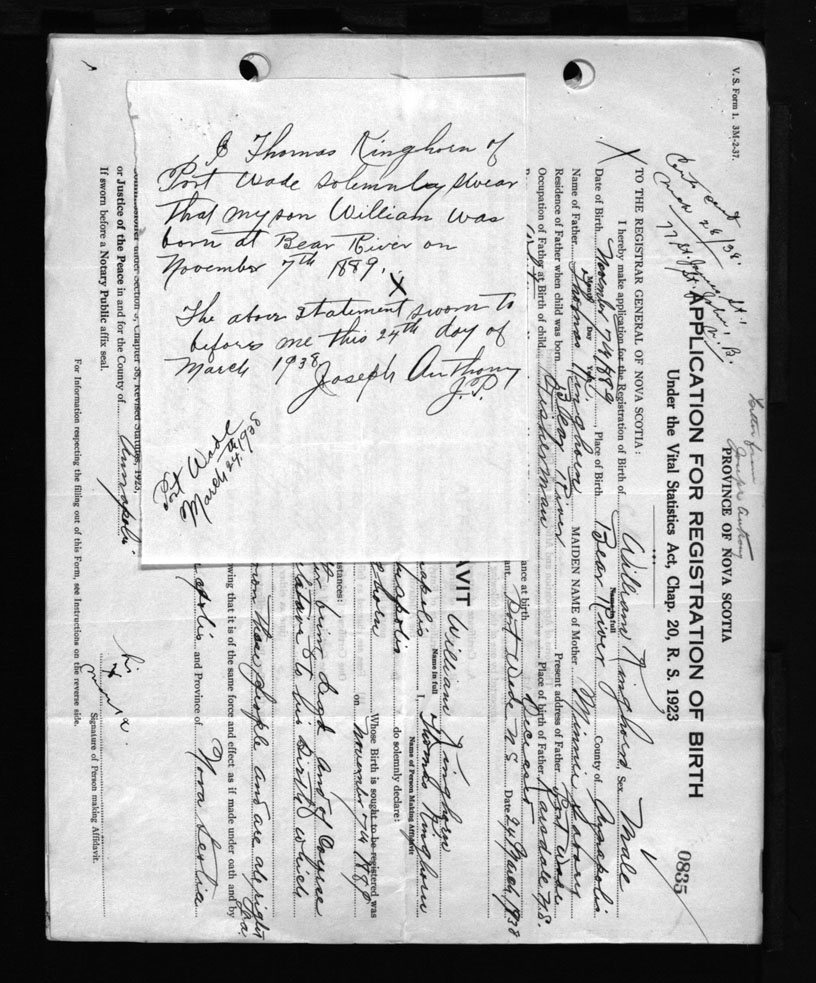 I Thomas Kinghorn of
Port Wade solemnley swear
that my son William was
born at Bear River on
November 7th 1889.
X
The above statement sworn to
before me this 24th day of
March 1938
Joseph Anthony
J.P.
Port Wade
March 24th, 1938
V. S. Form 1. 3M-2-37.
PROVINCE OF NOVA SCOTIA
Joseph Anthony
APPLICATION FOR REGISTRATION OF BIRTH
Under the Vital Statistics Act, Chap. 20, R. S. 1923
0835
77 St. James St.,
St. John, N. B.
TO THE REGISTRAR GENERAL OF NOVA SCOTIA:
I hereby make application for the Registration of Birth of William Kinghorn Sex Male
Name in full
Date of Birth November 7th 1889, Place of Birth Bear River County of Annapolis
Month Day Year
Name of Father Thomas Kinghorn MAIDEN NAME of Mother Minnie
Residence of Father when child was born Bear River Present address of Father Port Wade
Occupation of Father at Birth of child Fisherman Place of birth of Father Karsdale N.S.
Deceased
ance at birth
ant. Port Wade N.S. Date 24 March 1938
AVIT William Kinghorn
Name in full
napolis I, Thomas Kinghorn
Name of Person Making Affidavit
do solemnly declare:
Whose Birth is sought to be registered was
on November 7th 1889
stances:
being dead and of
to his Birth which
these people and are all right
wing that it is of the same force and effect as if made under oath and by
and Province of Nova Scotia
Section 5, Chapter 38, Revised Statutes, 1923,
or Justice of the Peace in and for the County of Annapolis
If sworn before a Notary Public affix seal.
his
X
mark
Signature of Person making Affidavit.
For Information respecting the filling out of this Form, see Instructions on the reverse side.